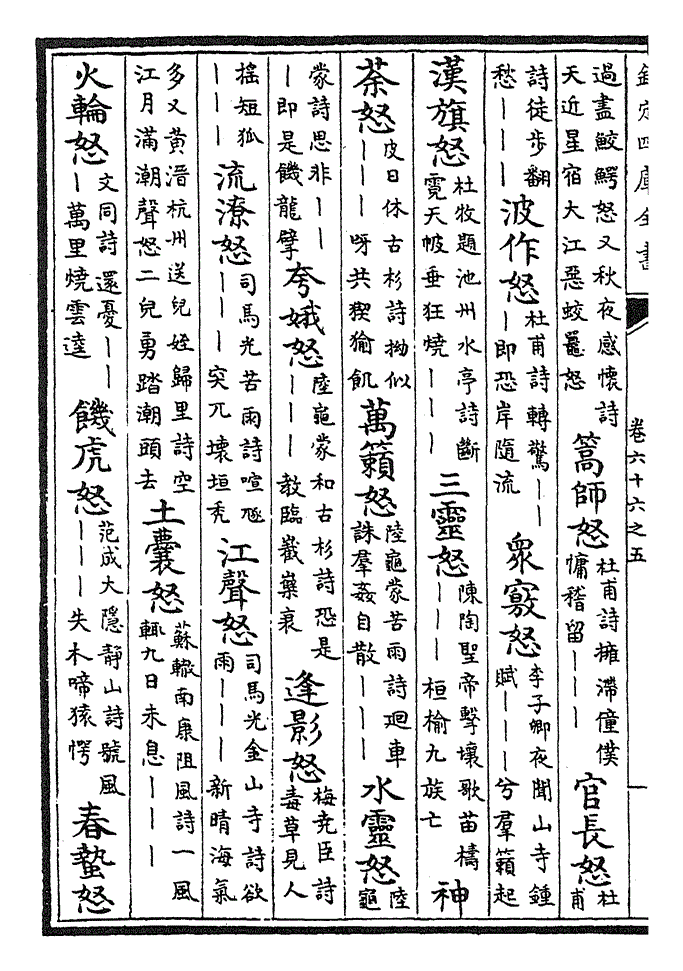 欽定四庫全書 卷六十六之五
過盡鮫鰐怒又秋夜感懷詩
天近星宿大江惡蛟鼉怒
篙師怒
杜甫詩擁滯僮僕
慵稽留丨丨丨
官長怒
杜
甫
詩徒步翻
愁丨丨丨
波作怒
杜甫詩轉驚丨丨
丨即恐岸隨流
衆竅怒
李子卿夜聞山寺鐘
賦丨丨丨兮羣籟起
漢旗怒
杜牧題池州水亭詩斷
霓天帔垂狂燒丨丨丨
三靈怒
陳陶聖帝擊壤歌苗檮
丨丨丨桓榆九族亡
神
荼怒
皮日休古杉詩拗似
丨丨丨呀共猰㺄飢
萬籟怒
陸龜蒙苦雨詩迴車
誅羣姦自散丨丨丨
水靈怒
陸
龜
蒙詩思非丨丨
丨即是饑龍擘
夸娥怒
陸龜蒙和古杉詩恐是
丨丨丨教臨嶻嶪衰
逢影怒
梅堯臣詩
毒草見人
搖短狐
丨丨丨
流潦怒
司馬光苦雨詩喧豗
丨丨丨突兀壞垣禿
江聲怒
司馬光金山寺詩欲
雨丨丨丨新晴海氣
多又黃溍杭州送兒姪歸里詩空
江月滿潮聲怒二兒勇踏潮頭去
土囊怒
蘇轍南康阻風詩一風
輒九日未息丨丨丨
火輪怒
文同詩還憂丨丨
丨萬里燒雲逵
饑虎怒
范成大隱靜山詩號風
丨丨丨失木啼猿愕
春蟄怒